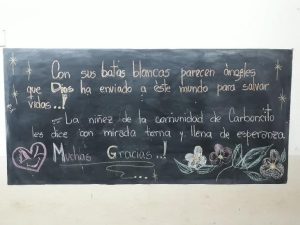 Con sus batas blancas parecen ángeles
que Dios ha enviado a éste mundo para salvar
vidas..!
La niñez de la comunidad de Carboncito
les dice con mirada tierna y llena de esperanza
Muchas Gracias..!